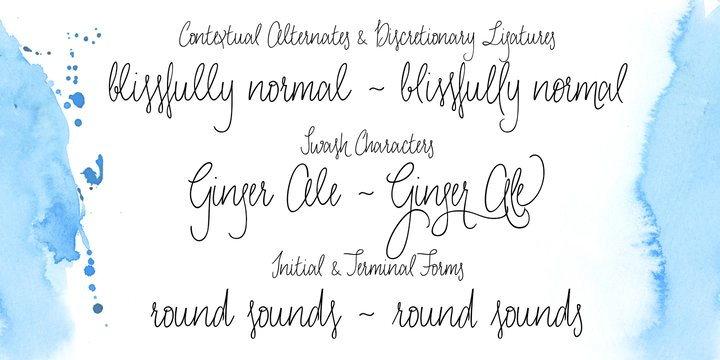 Contextual Alternates & Discretionary Ligatures
blissfully normal ~ blissfully normal
Swash Characters
Ginger Ale ~ Ginger Ale
Initial & Terminal Forms
round sounds ~ round sounds